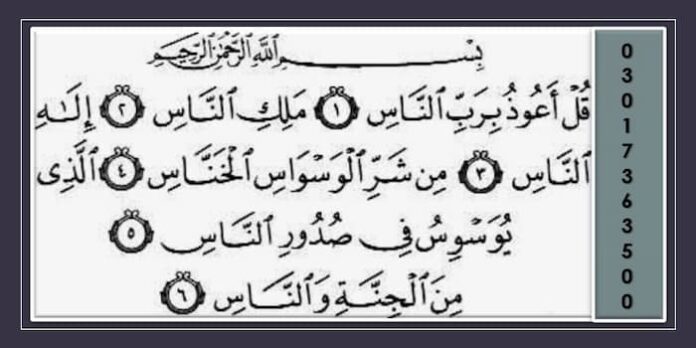 بِسْمِ اللَّهِ الرَّحْمَٰنِ الرَّحِيمِ
قُلْ أَعُوذُ بِرَبِّ النَّاسِ ١ مَلِكِ النَّاسِ ٢ إِلَٰهِ
النَّاسِ ٣ مِن شَرِّ الْوَسْوَاسِ الْخَنَّاسِ ٤ الَّذِي
يُوَسْوِسُ فِي صُدُورِ النَّاسِ ٥
مِنَ الْجِنَّةِ وَالنَّاسِ ٦
0
3
0
1
7
3
6
3
5
0
0